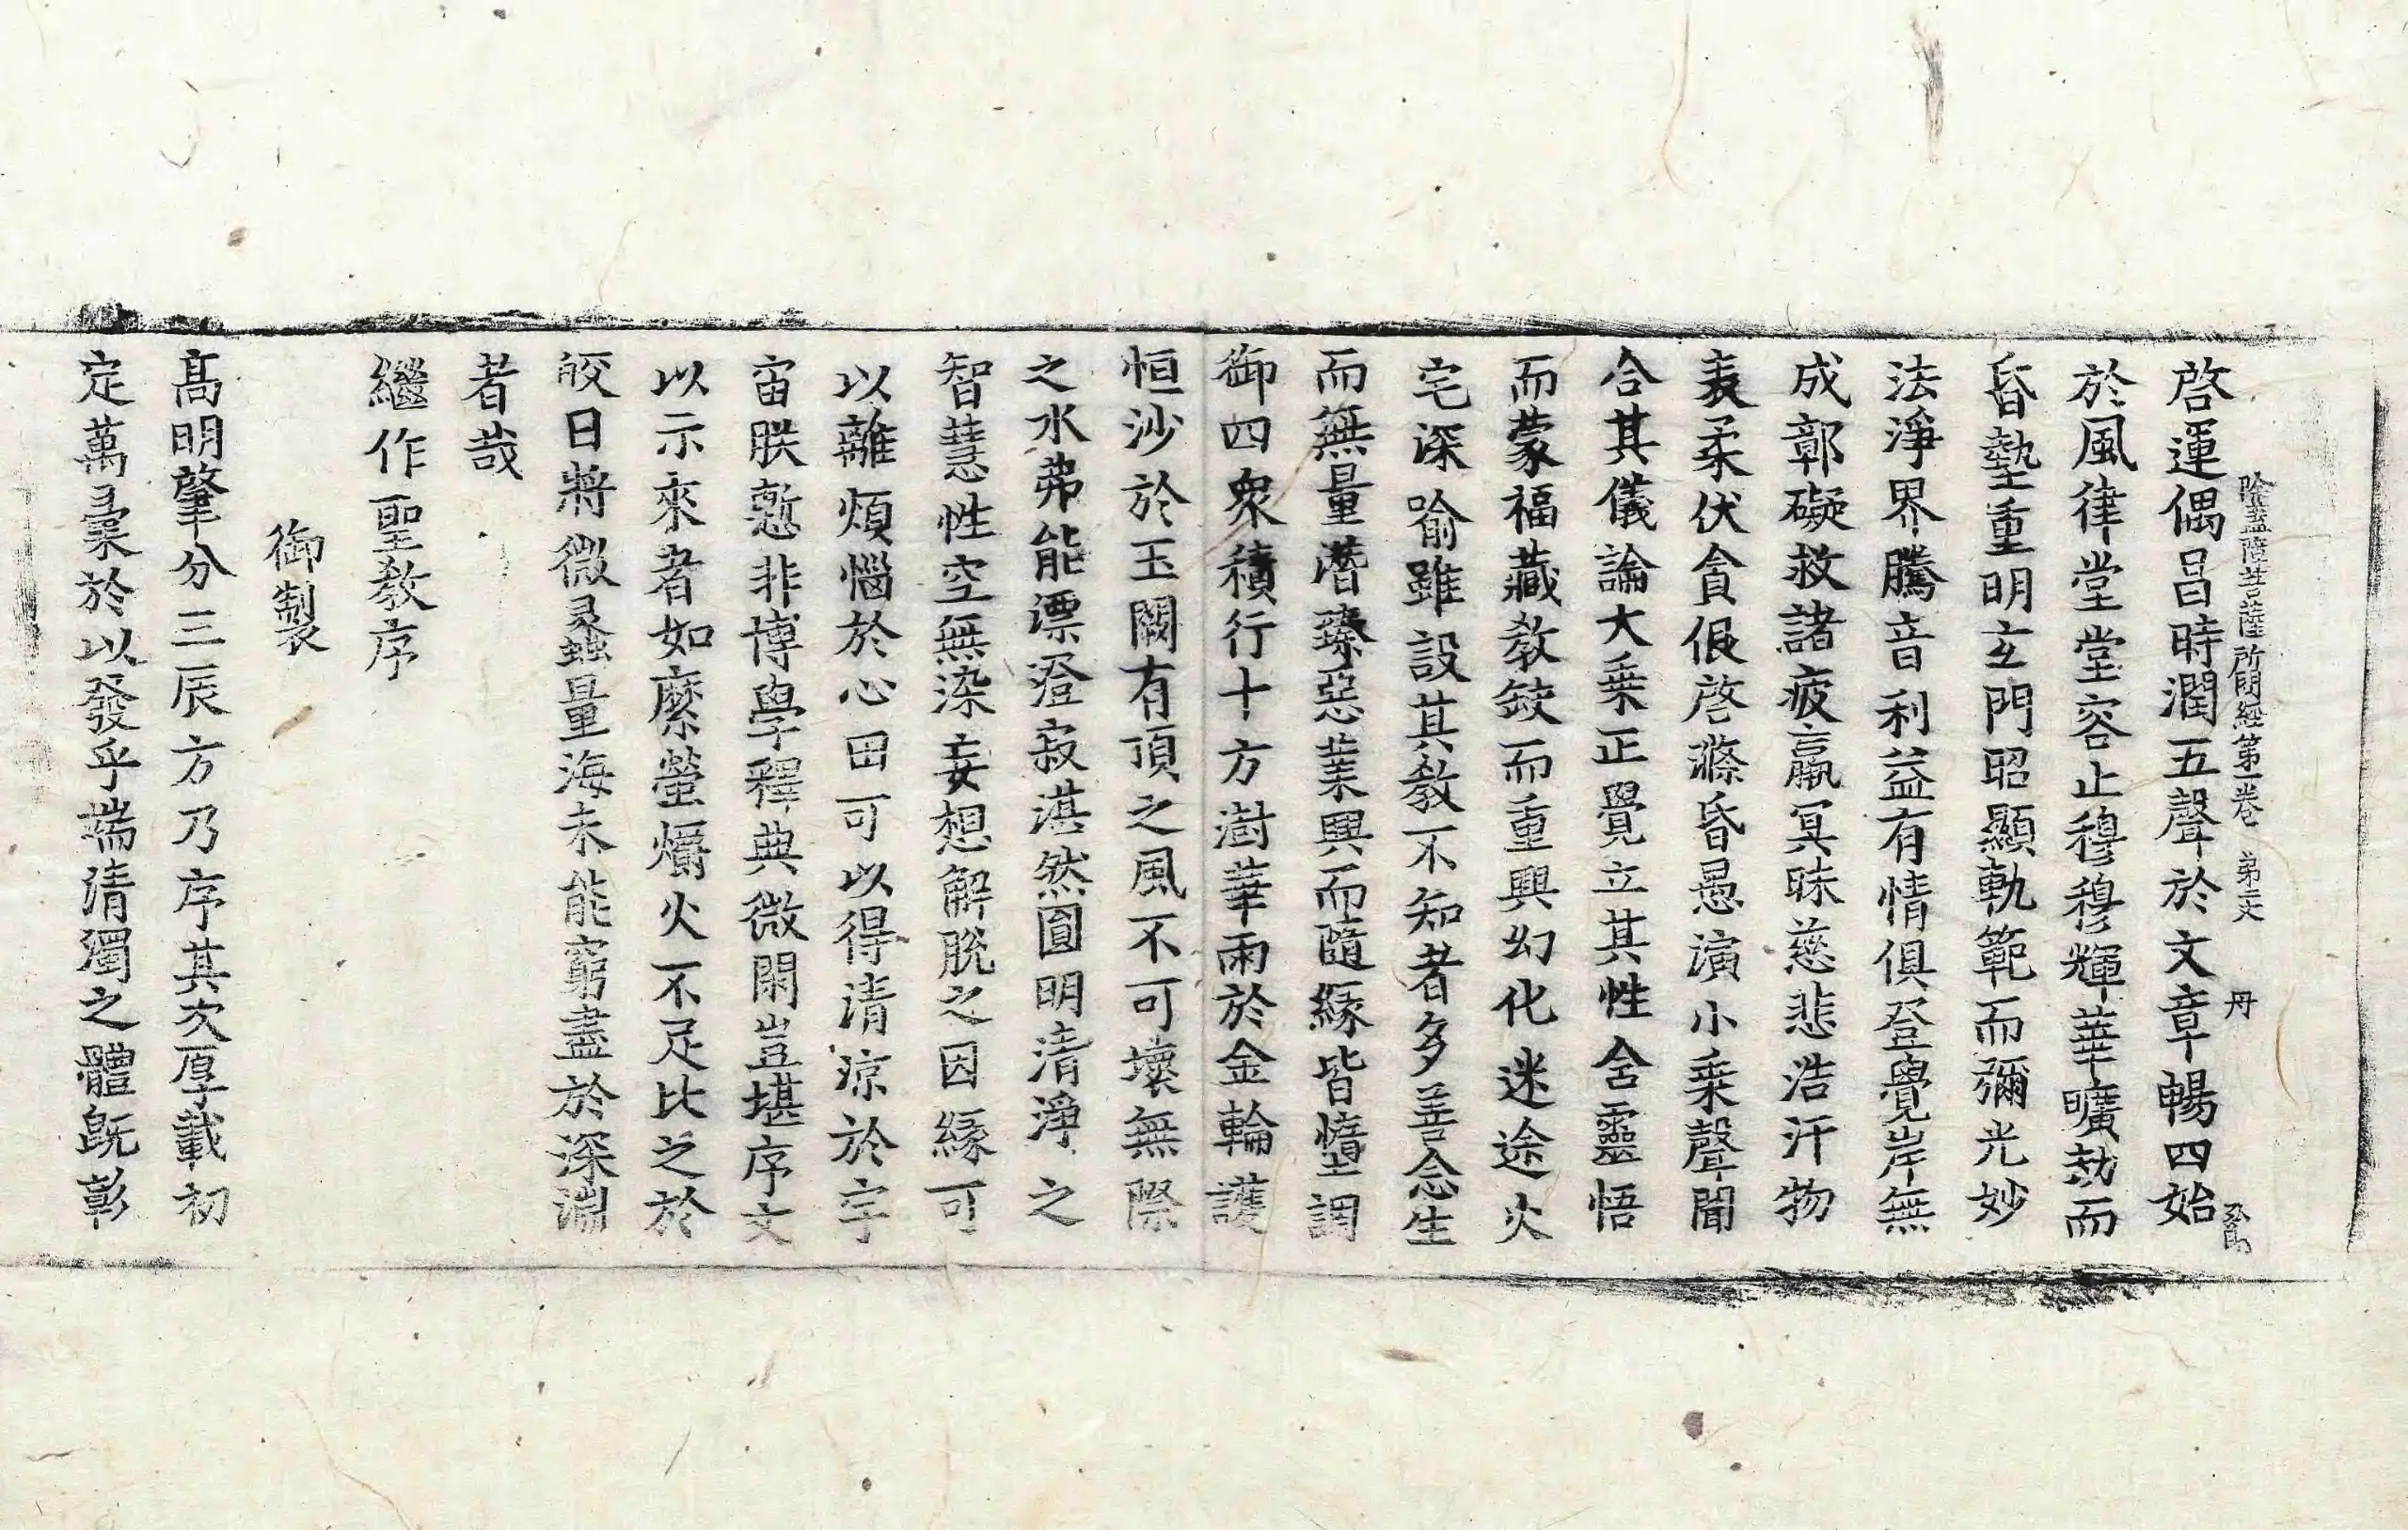 除蓋障菩薩所問經第一卷 第二丈 丹
啓運偶昌時潤五聲於文章暢四始
於風律堂堂容止穆穆輝華曠劫而
昏墊重明玄門昭顯軌範而彌光妙
法淨界騰音利益有情俱登覺岸無
成鄣礙救諸疲羸冥昧慈悲浩汗物
表柔伏貪佷啓滌昏愚演小乗聲聞
合其儀論大乗正覺立其性含靈悟
而蒙福藏教缺而重興幻化迷途火
宅深喻雖設其教不知者多善念生
而無量潛臻惡業興而隨緣皆墮調
御四衆積行十方澍華雨於金輪護
恒沙於玉闕有頂之風不可壞無際
之水弗能漂澄寂湛然圓明清淨之
智慧性空無染妄想解脫之因緣可
以離煩惱於心田可以得清涼於宇
宙朕慙非博學釋典微閑豈堪序文
以示來者如縻螢爝火不足比之於
皎日將微蠡量海未能窮盡於深淵
者哉
繼作聖教序
御製
髙明肇分三辰方乃序其次厚載初
定萬彙於以發乎端清濁之體旣彰